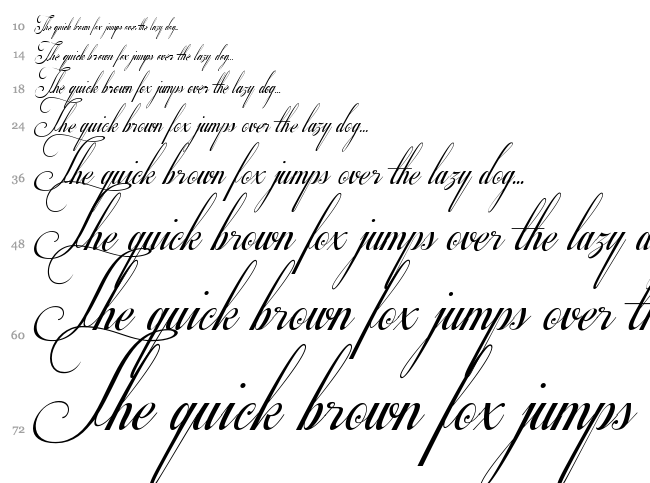 10 The quick brown fox jumps over the lazy dog...
14 The quick brown fox jumps over the lazy dog...
18 The quick brown fox jumps over the lazy dog...
24 The quick brown fox jumps over the lazy dog...
36 The quick brown fox jumps over the lazy dog...
48 The quick brown fox jumps over the lazy d
60 The quick brown fox jumps over th
72 The quick brown fox jumps